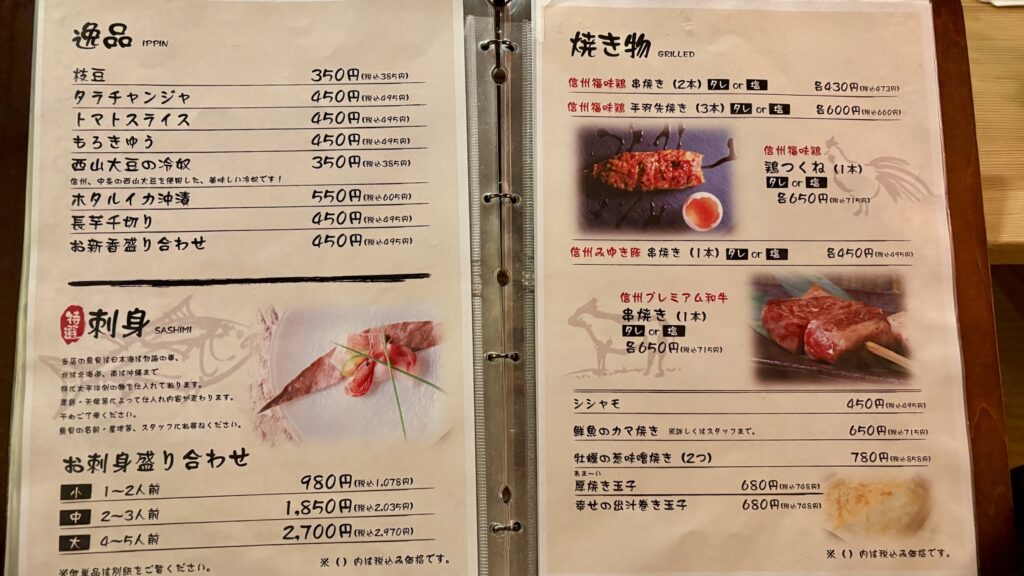 逸品 IPPIN
枝豆 350円(税込385円)
タラチャンジャ 450円(税込495円)
トマトスライス 450円(税込495円)
もろきゅう 450円(税込495円)
西山大豆の冷奴 350円(税込385円)
信州、中条の西山大豆を使用した、美味しい冷奴です!
ホタルイカ沖漬 550円(税込605円)
長芋千切り 450円(税込495円)
お新香盛り合わせ 450円(税込495円)
特選 刺身 SASHIMI
当店の魚貝は日本海は勿論の事、
北は北海道、南は沖縄まで
特に太平洋側の物を仕入れてあります。
季節・天候等によって仕入れ内容が変わります。
予めご了承ください。
魚貝の名前・産地等、スタッフにお尋ねください。
お刺身盛り合わせ
小 1〜2人前 980円(税込1,078円)
中 2〜3人前 1,850円(税込2,035円)
大 4〜5人前 2,700円(税込2,970円)
※他単品は別紙をご覧ください。
※()内は税込み価格です。
焼き物 GRILLED
信州福味鶏 串焼き (2本) タレ or 塩 各430円(税込473円)
信州福味鶏 手羽先焼き (3本) タレ or 塩 各600円(税込660円)
信州福味鶏
鶏つくね (1本)
タレ or 塩
各650円(税込715円)
信州みゆき豚 串焼き (1本) タレ or 塩 各450円(税込495円)
信州プレミアム和牛
串焼き (1本)
タレ or 塩
各650円(税込715円)
シシャモ 450円(税込495円)
鮮魚のカマ焼き ※詳しくはスタッフまで。 650円(税込715円)
牡蠣の葱味噌焼き (2つ) 780円(税込858円)
あま〜い
厚焼き玉子 680円(税込748円)
幸せの出汁巻き玉子 680円(税込748円)
※()内は税込み価格です。